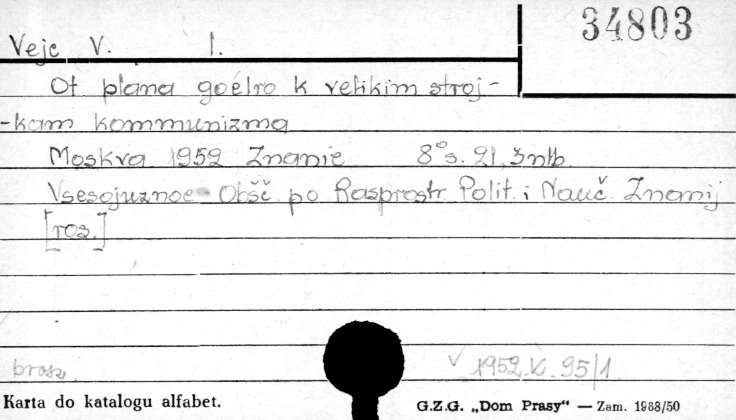 34803
Vejc V. I.
Ot plana goélro k velikim stroj-
-kam kommunizma
Moskva 1952 Znanie 8° s. 21, 3nlb.
Vsesojuznoe Obšč po Rasprostr. Polit. i Nauč. Znanij
[ros.]
brosz.
1952.K.95/1
Karta do katalogu alfabet.
G.Z.G. „Dom Prasy“ — Zam. 1988/50